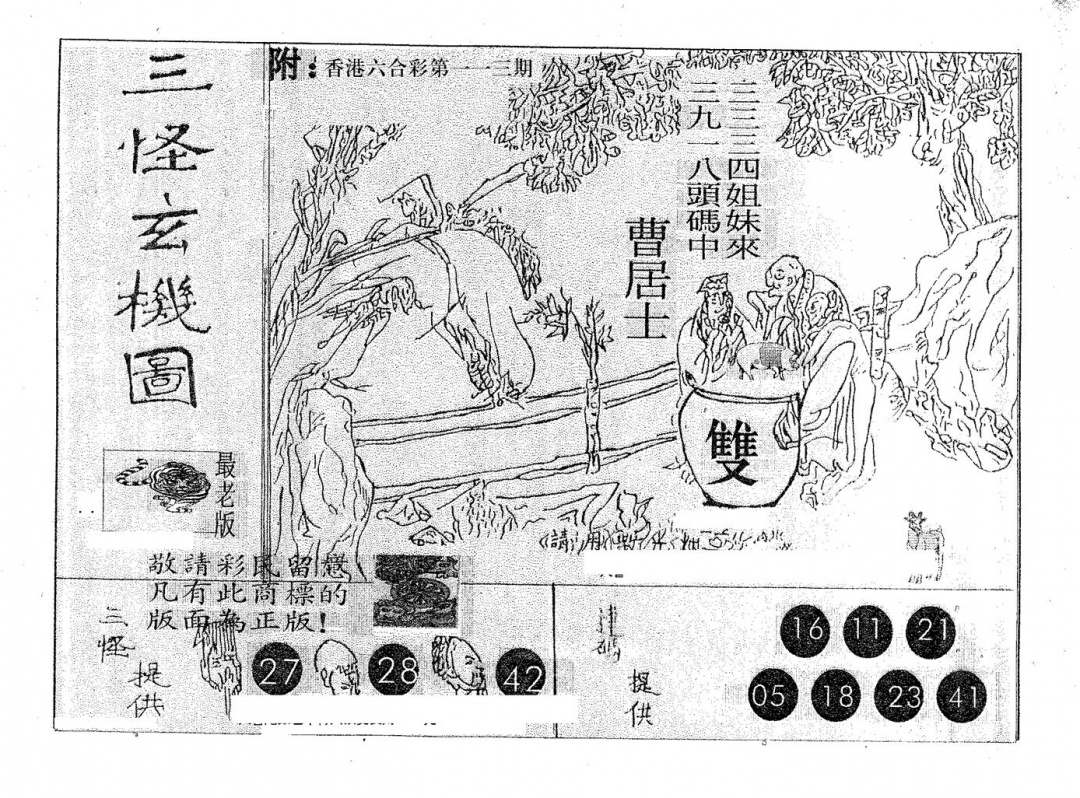 三怪玄機圖
附：香港六合彩第一一三期
二三三四姐妹來
三九一八頭碼中
曹居士
雙
最老版
敬請彩民留意
凡有此商標的
版面為正版！
三怪
提供
27 28 42
提供
16 11 21
05 18 23 41